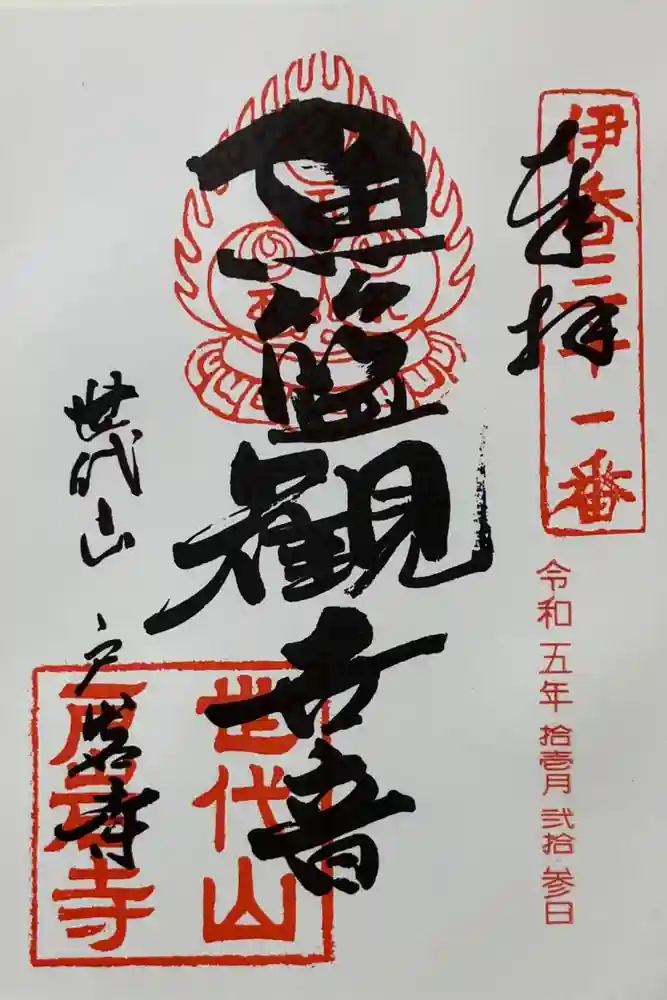 奉拝
伊 三十一番
令和五年拾壱月弐拾参日
魚籃観世音
世代山
世代山 戸 寺
寺